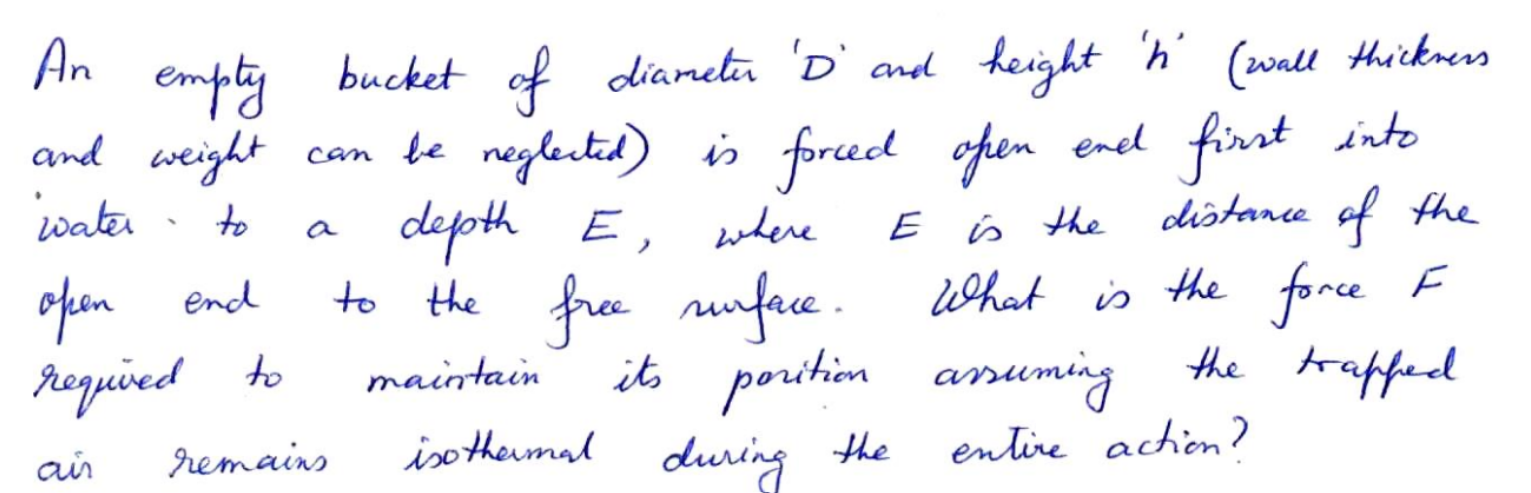 An empty bucket of diameter 'D' and height 'h' (wall thickness
and weight can be neglected) is forced open end first into
water to a depth E, where E is the distance of the
open end to the free surface. What is the force F
required to maintain its position assuming the trapped
air remains isothermal during the entire action?